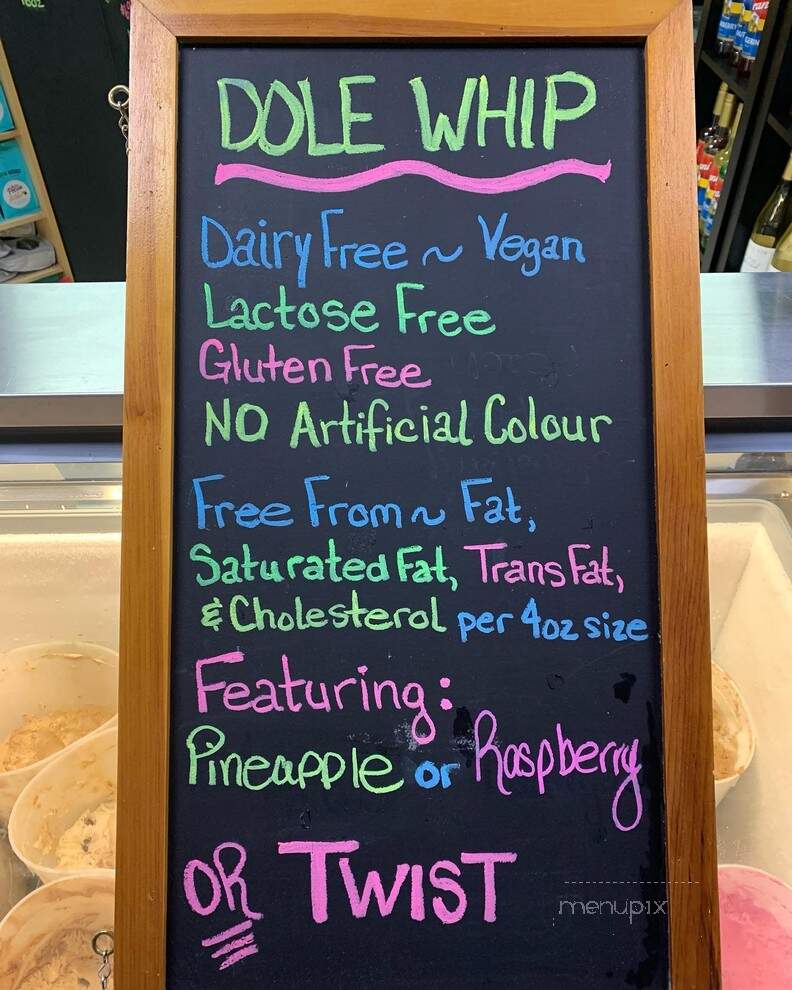 DOLE WHIP
Dairy Free ~ Vegan
Lactose Free
Gluten Free
NO Artificial Colour
Free From ~ Fat,
Saturated Fat, Trans Fat,
& Cholesterol per 4oz size
Featuring:
Pineapple or Raspberry
OR TWIST
menupix